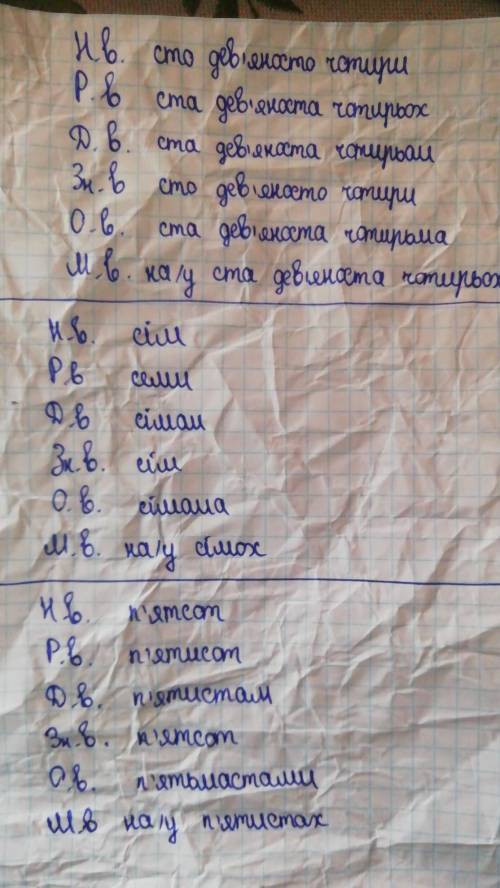 Н.в. сто дев'яносто чотири
Р.в ста дев'яноста чотирьох
Д.в. ста дев'яноста чотирьом
Зн.в сто дев'яносто чотири
О.в. ста дев'яноста чотирьма
М.в. на/у ста дев'яноста чотирьох
Н.в. сім
Р.в семи
Д.в сімом
Зн.в. сім
О.в. сімома
М.в. на/у сімох
Н.в. п'ятсот
Р.в. п'ятисот
Д.в. п'ятистам
Зн.в. п'ятсот
О.в. п'ятьмастами
М.в на/у п'ятистах